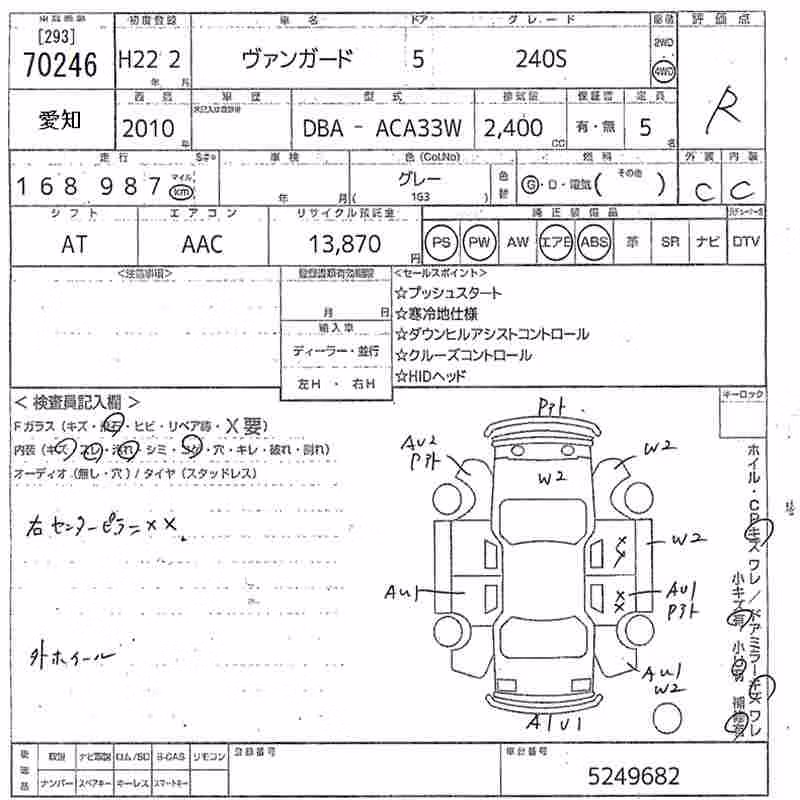 初度登録 車名 ドア グレード 評価点
[293]
70246 H22 2 ヴァンガード 5 240S 2WD
4WD
年 月
R
車歴 型式 排気量 保証書 定員
愛知 2010 DBA - ACA33W 2,400 有・無 5
年 CC 名
走行 車検 色(Col.No) 燃料 外装 内装
168 987 マイル km 年 月 グレー 1G3 G・D・電気( その他 ) C C
シフト エアコン リサイクル預託金 純正装備品
AT AAC 13,870 円 PS PW AW エアB ABS 革 SR ナビ DTV
<注意事項> <セールスポイント>
☆プッシュスタート
月 日 ☆寒冷地仕様
輸入車 ☆ダウンヒルアシストコントロール
ディーラー・並行 ☆クルーズコントロール
左H ・ 右H ☆HIDヘッド
<検査員記入欄> キーロック
Fガラス(キズ・飛石・ヒビ・リペア等・X要)
内装(キズ・スレ・汚れ・シミ・コゲ・穴・キレ・破れ・割れ)
オーディオ(無し・穴)/タイヤ(スタッドレス)
右センターピラーXX
外ホイール
P3t
AU2
P3t
W2
W2
W2
AU1
AU1
P3t
AU1
W2
A1U1
X
X
X
X
ホイル・CPキズワレ/ドアミラーキズワレ
小キズ有 小凹有 補修有
取説 ナビ取説 ロム/SD B-CAS リモコン 登録番号 車台番号
ナンバー スペアキー キーレス スマートキー 5249682